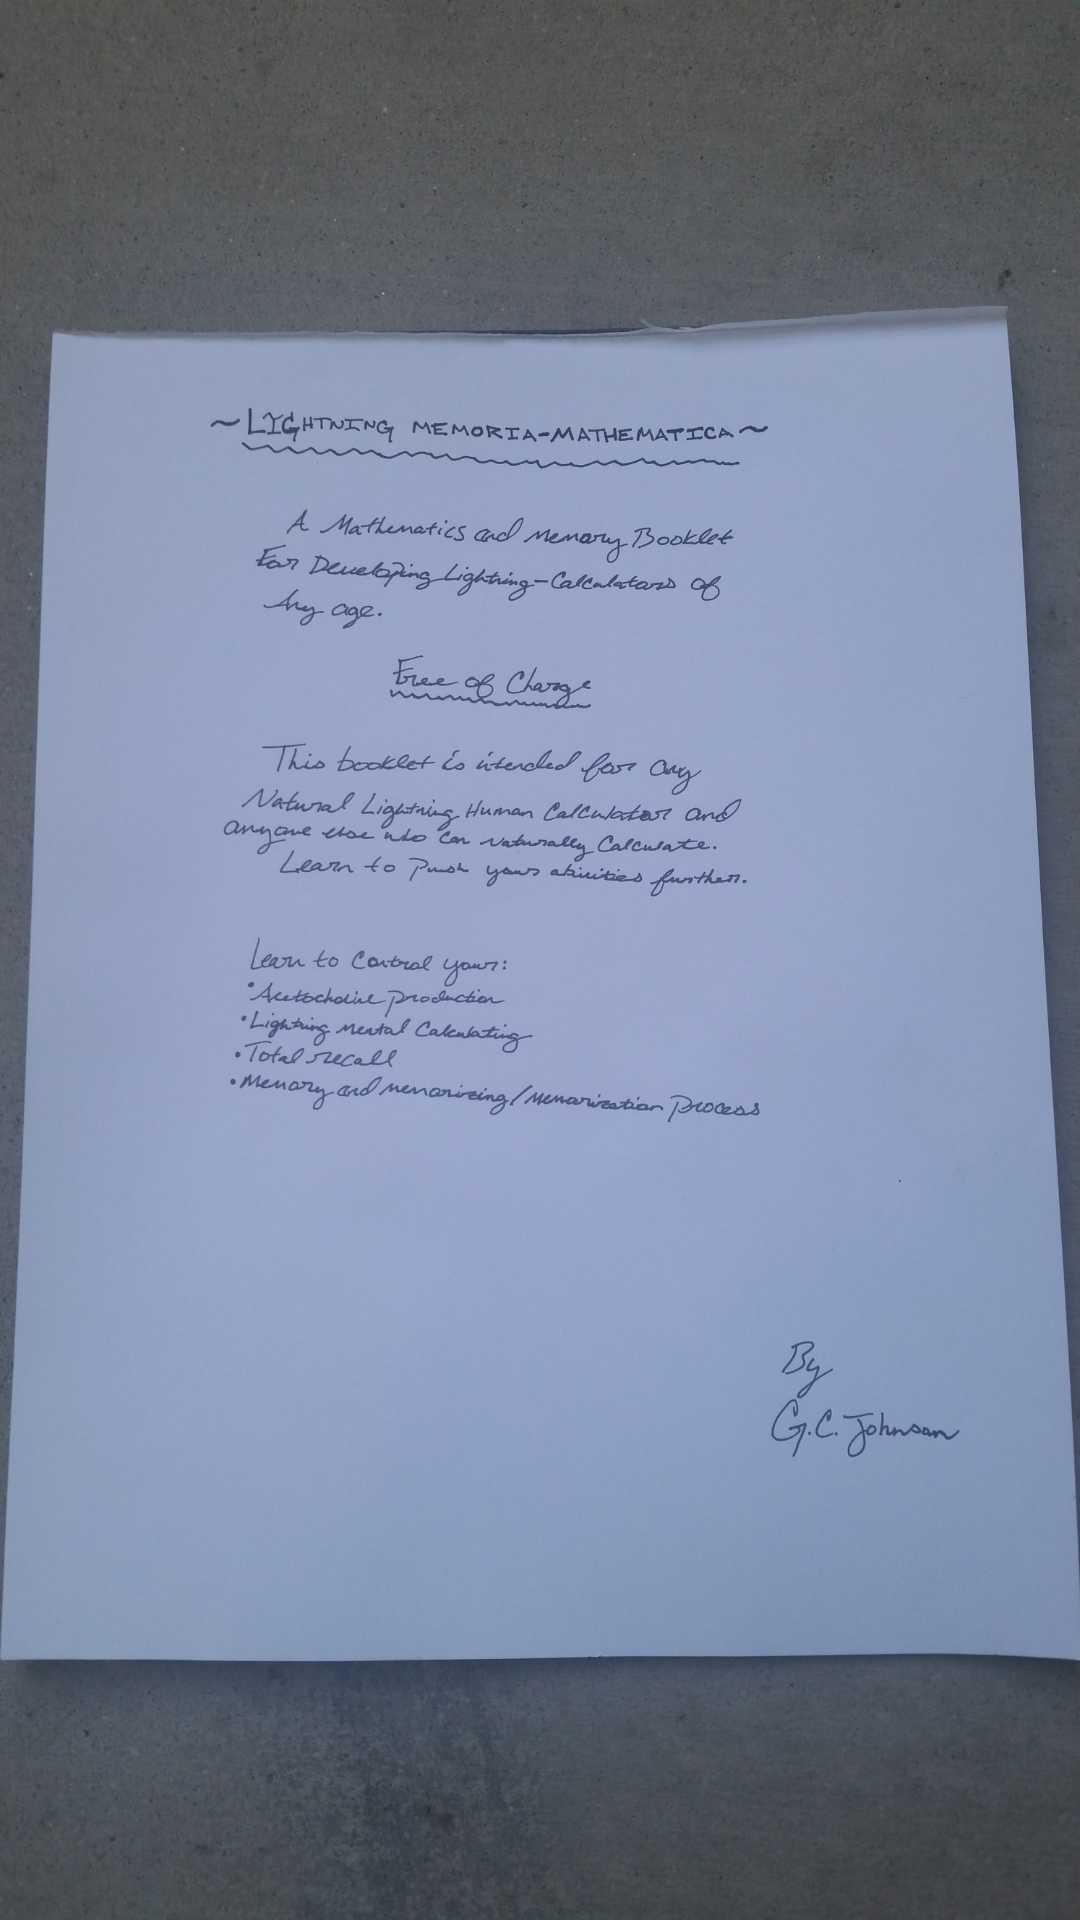 ~ LIGHTNING MEMORIA-MATHEMATICA ~
A Mathematics and Memory Booklet
For Developing Lightning-Calculators of
Any age.
Free of Charge
This booklet is intended for any
Natural Lightning Human Calculator and
anyone else who can naturally Calculate.
Learn to Push your abilities further.
Learn to Control your:
• Acetocholine production
• Lightning Mental Calculating
• Total recall
• Memory and memorizing/memorization Process
By
G.C. Johnson